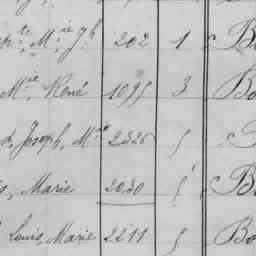 te, M.ie J.h 202 1 B
M.ie René 1095 3 Bo
d, Joseph, M.ie 2326 5 B
s, Marie 2030 5 B
Louis Marie 2211 5 Bo